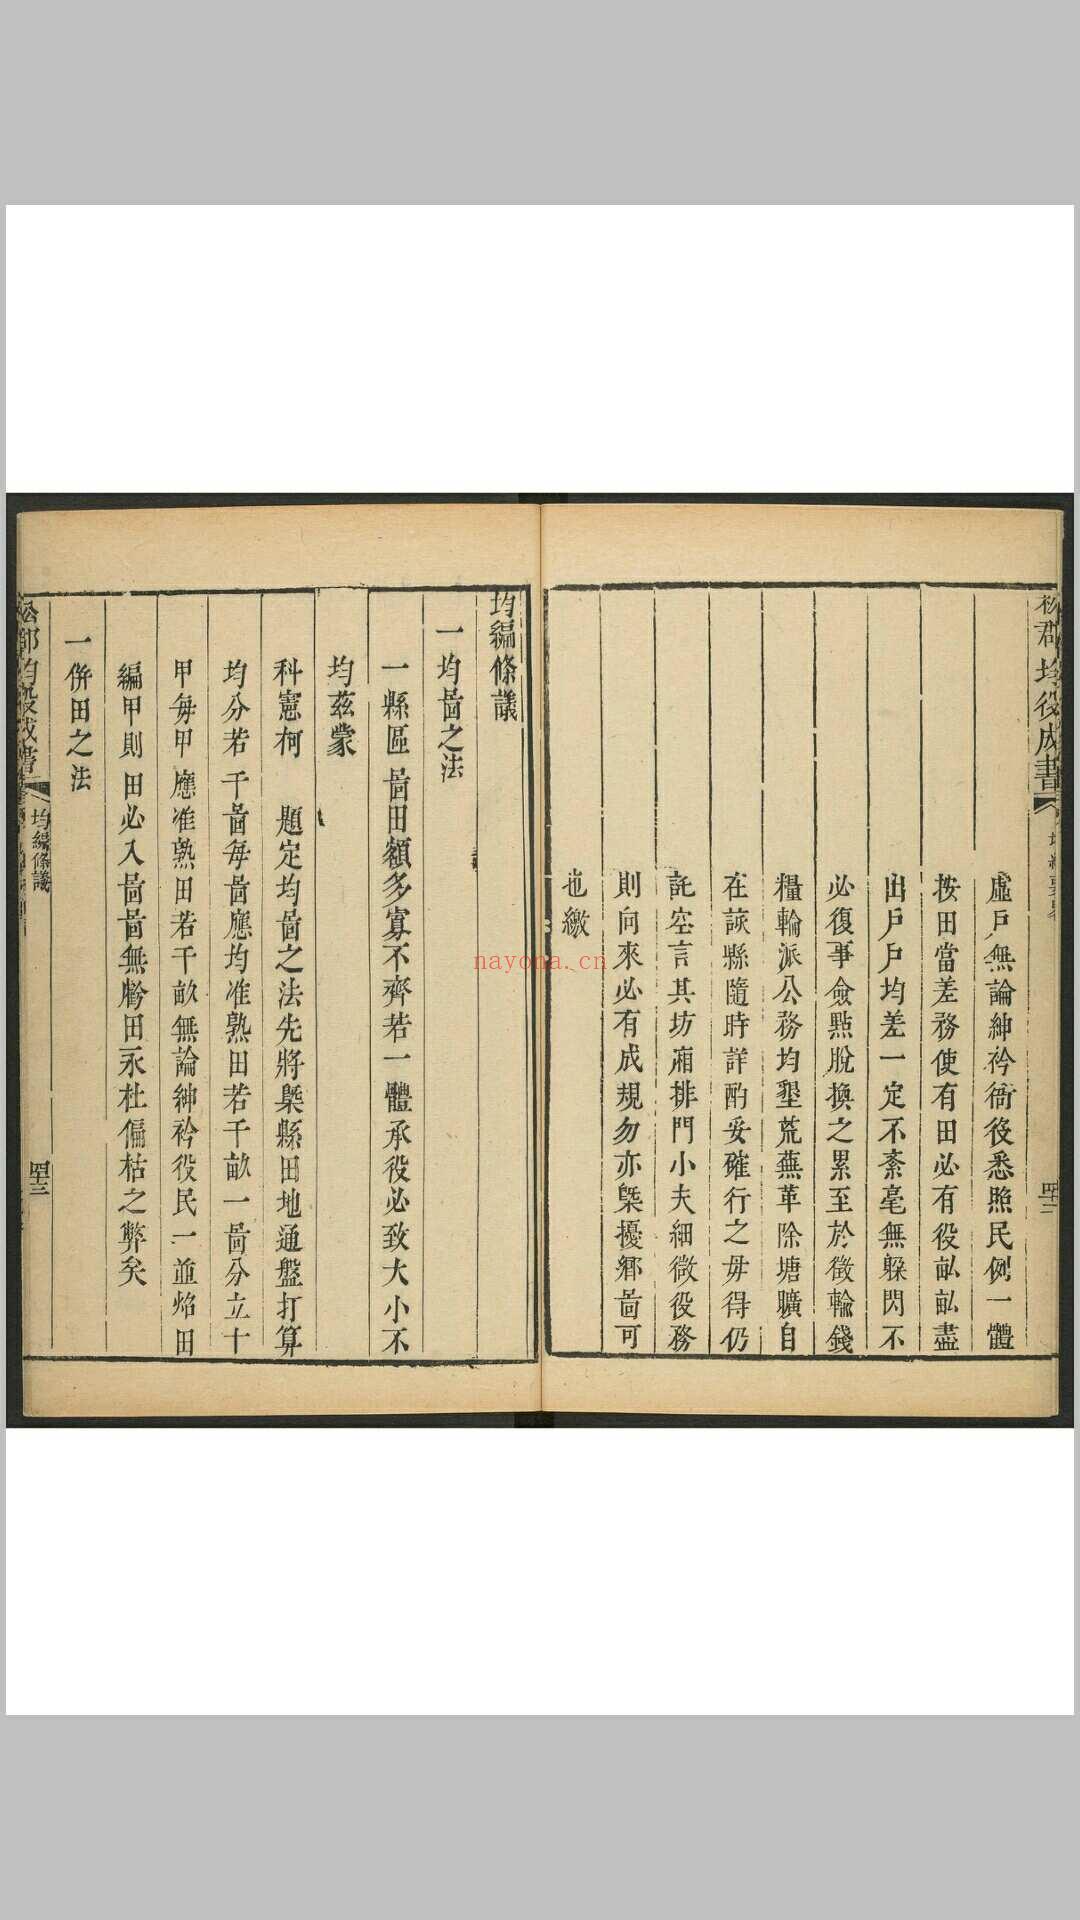 郡均役成書
虛戶無論紳衿衙役悉照民例一體
按田當差務使有田必有役畝畝盡
出戶戶均差一定不紊毫無躱閃不
必復事僉點脫換之累至於徵輸錢
糧輪派公務均墾荒蕪革除塘曠自
在該縣隨時詳酌妥確行之毋得仍
託空言其坊廂排門小夫細微役務
則向來必有成規勿亦槩擾鄉啚可
也繳
均編條議
一均啚之法
一縣區啚田額多寡不齊若一體承役必致大小不
均茲蒙
科憲柯 題定均啚之法先將槩縣田地通盤打算
均分若干啚每啚應均准熟田若干畝一啚分立十
甲每甲應准熟田若干畝無論紳衿役民一並焰田
編甲則田必入啚啚無賸田永杜偏枯之弊矣
一併田之法
均役成書
均編條議
nayona.cn